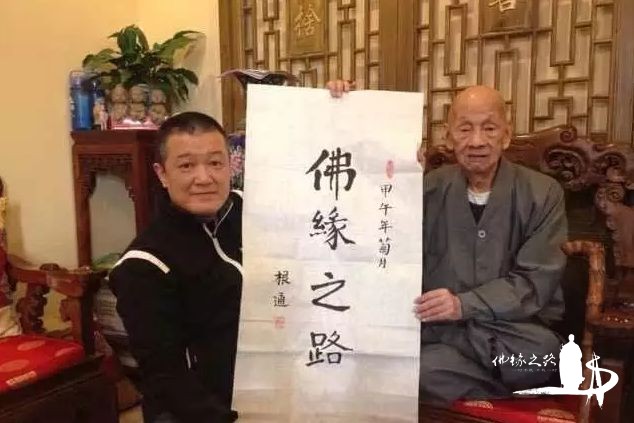 甲午年菊月
佛緣之路
根通
捨
佛缘之路